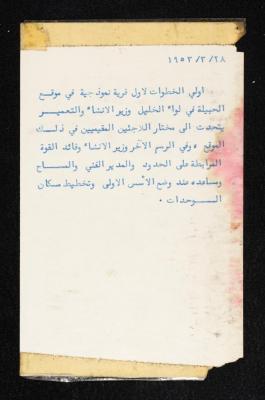 ١٩٥٣/٣/٢٨
اولي الخطوات لاول قرية نموذجية في موقع
الحبيلة في لواء الخليل وزير الانشاء والتعميـــر
يتحدث الى مختار اللاجئين المقيمين في ذلــك
الموقع ، وفي الرسم الآخر وزير الانشاء وقائد القوة
المرابطة على الحدود والمدير الفني والمســـاح
ومساعده عند وضع الأسس الاولى وتخطيط مكان
الـــوحدات .